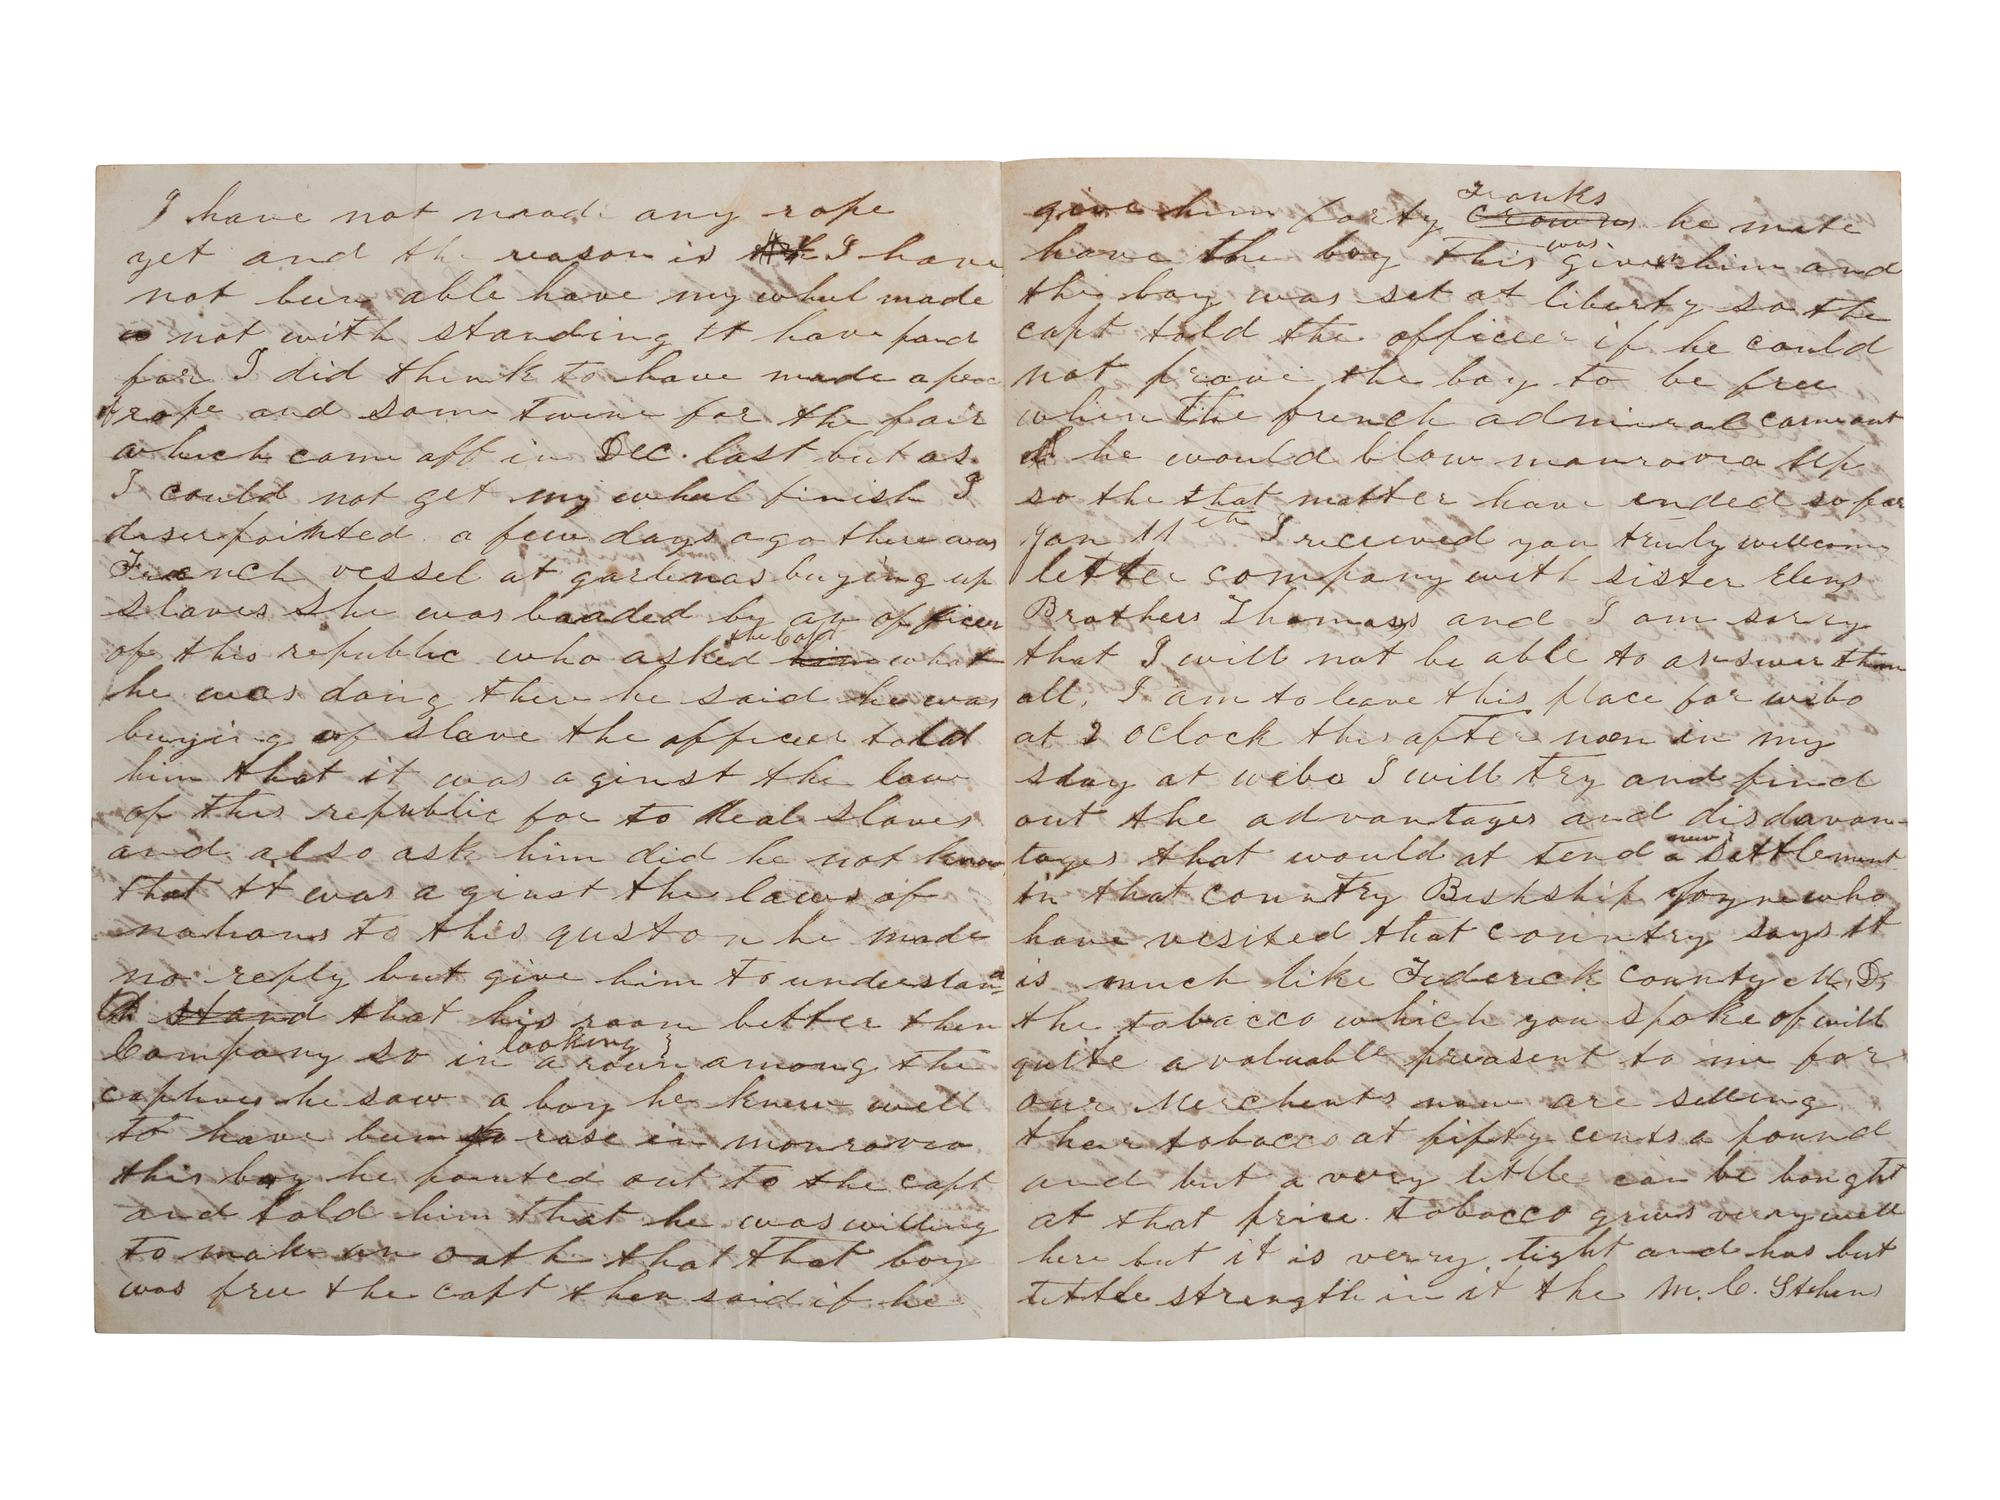 I have not made any rope
yet and the reason is I have
not bein able have my wheel made
not with standing It have paid
for I did think to have made a peac
of rope and some twine for the fair
which come off in Dec. last but as
I could not get my wheel finish I
diserpointed. a few days ago there was
French vessel at garlinas buying up
slaves She was boaded by an officer
of this republic who asked the Capt him what
he was doing there he said he was
buying of slave the officer told
him that it was aginst the law
of this republic for to deal slaves
and also ask him did he not know
that It was aginst the laws of
nations to this queston he made
no reply but give him to understan
stand that his room better then
Company so in looking aroun among the
captives he saw a boy he knew well
to have bein rase in monrovia
this boy he pointed out to the capt
and told him that he was willing
to make an oath that that boy
was free the capt then said if he
give him forty Franks Crowns he mite
have the boy this was given him and
the boy was set at liberty so the
capt told the officer if he could
not prove the boy to be free
when the french admiral came out
he would blow monrovia up
so the that matter have ended so far
Jan 11th I received you truly wellcome
letter company with sister Elens
Brothers Thomass and I am sorry
that I will not be able to answer them
all. I am to leave this place for wibo
at 2 oClock this after noon in my
stay at webo I will try and find
out the advantages and disdavan-
tages that would at tend a new settlement
in that country Bishship Payne who
have vesited that country says It
is much like Federick County M.D.
the tobacco which you spoke of will
quite a valuable preasent to me for
our Merchents now are selling
their tobacco at fifty cents a pound
and but a very little can be bought
at that price. tobacco grows very well
here but it is verry light and has but
little strength in it the M. C. Stehens